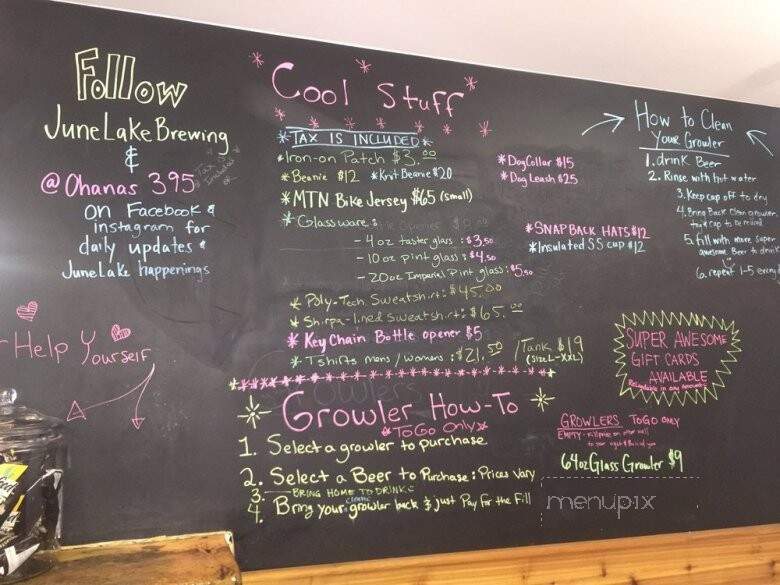 Follow
JuneLakeBrewing
&
@Ohanas 395
on Facebook &
instagram for
daily updates &
JuneLake happenings
Help Yourself
*Cool Stuff*
*TAX IS INCLUDED*
*Iron-on Patch $3.00
*Beanie $12 *Knit Beanie $20
*MTN Bike Jersey $65 (small)
*Glassware:
- 4oz taster glass: $3.50
- 10oz pint glass: $4.50
- 20oz Imperial Pint glass: $5.50
*Poly-Tech Sweatshirt: $45.00
*Shirpa-lined Sweatshirt: $65.00
*KeyChain Bottle opener $5
*Tshirts mens/womans: $21.50 / Tank $19
(SIZE L-XXL)
*DogCollar $15
*Dog Leash $25
*SNAPBACK HATS $12
*Insulated SS cup $12
Growler How-To
*ToGo Only*
1. Select a growler to purchase
2. Select a Beer to Purchase: Prices Vary
3. BRING HOME TO DRINK
4. Bring your clean growler back & just Pay for the Fill
How to Clean
Your Growler
1. drink Beer
2. Rinse with hot water
3. Keep cap off to dry
4. Bring Back Clean growler
and cap to be refilled
5. fill with more super
awesome Beer to drink
6. repeat 1-5
SUPER AWESOME
GIFT CARDS
AVAILABLE
GROWLERS ToGo ONLY
EMPTY - fill price on other wall
64oz Glass Growler $9
menupix